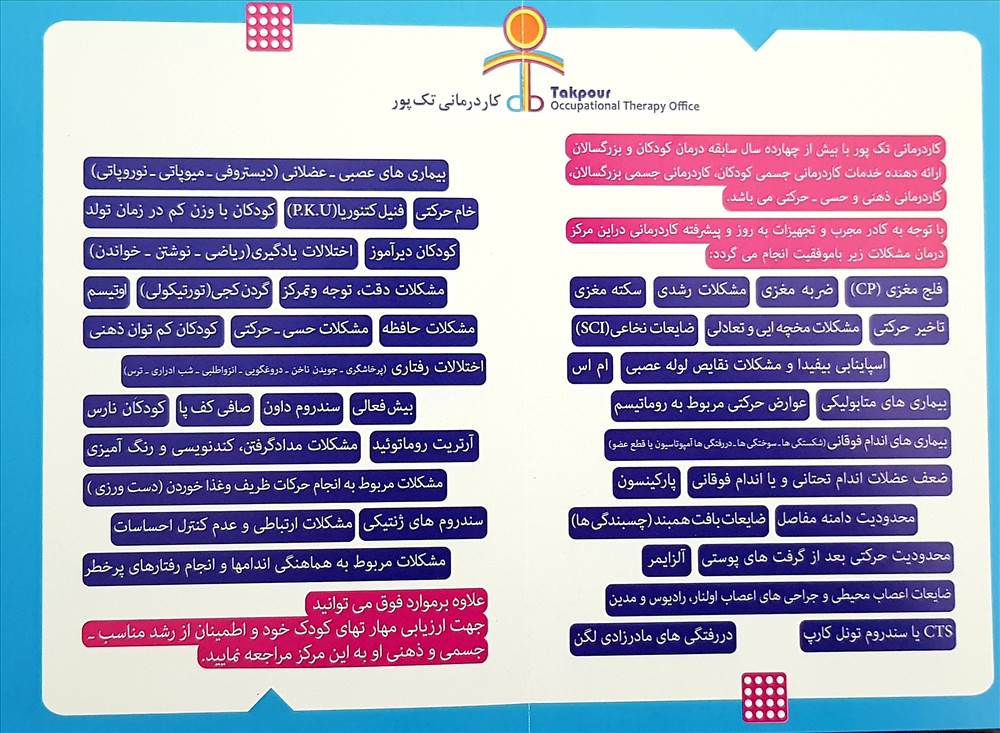 Takpour
Occupational Therapy Office
کاردرمانی تک پور
کاردرمانی تک پور با بیش از چهارده سال سابقه درمان کودکان و بزرگسالان
ارائه دهنده خدمات کاردرمانی جسمی کودکان، کاردرمانی جسمی بزرگسالان،
کاردرمانی ذهنی و حسی ـ حرکتی می باشد.
با توجه به کادر مجرب و تجهیزات به روز و پیشرفته کاردرمانی دراین مرکز
درمان مشکلات زیر باموفقیت انجام می گردد:
فلج مغزی (CP) ضربه مغزی مشکلات رشدی سکته مغزی
تاخیر حرکتی مشکلات مخچه ایی و تعادلی ضایعات نخاعی(SCI)
اسپاینابی بیفیدا و مشکلات نقایص لوله عصبی ام اس
بیماری های متابولیکی عوارض حرکتی مربوط به روماتیسم
بیماری های اندام فوقانی (شکستگی ها ـ سوختگی ها ـ دررفتگی ها آمپوتاسیون یا قطع عضو)
ضعف عضلات اندام تحتانی و یا اندام فوقانی پارکینسون
محدودیت دامنه مفاصل ضایعات بافت همبند (چسبندگی ها)
محدودیت حرکتی بعد از گرفت های پوستی آلزایمر
ضایعات اعصاب محیطی و جراحی های اعصاب اولنار، رادیوس و مدین
CTS یا سندروم تونل کارپ دررفتگی های مادرزادی لگن
بیماری های عصبی ـ عضلانی (دیستروفی ـ میوپاتی ـ نوروپاتی)
خام حرکتی فنیل کتنوریا(P.K.U) کودکان با وزن کم در زمان تولد
کودکان دیرآموز اختلالات یادگیری(ریاضی ـ نوشتن ـ خواندن)
مشکلات دقت، توجه وتمرکز گردن کجی(تورتیکولی) اوتیسم
مشکلات حافظه مشکلات حسی ـ حرکتی کودکان کم توان ذهنی
اختلالات رفتاری (پرخاشگری ـ جویدن ناخن ـ دروغگویی ـ انزواطلبی ـ شب ادراری ـ ترس)
بیش فعالی سندروم داون صافی کف پا کودکان نارس
آرتریت روماتوئید مشکلات مدادگرفتن، کندنویسی و رنگ آمیزی
مشکلات مربوط به انجام حرکات ظریف وغذا خوردن (دست ورزی )
سندروم های ژنتیکی مشکلات ارتباطی و عدم کنترل احساسات
مشکلات مربوط به هماهنگی اندامها و انجام رفتارهای پرخطر
علاوه برموارد فوق می توانید
جهت ارزیابی مهار تهای کودک خود و اطمینان از رشد مناسب ـ
جسمی و ذهنی او به این مرکز مراجعه نمایید.